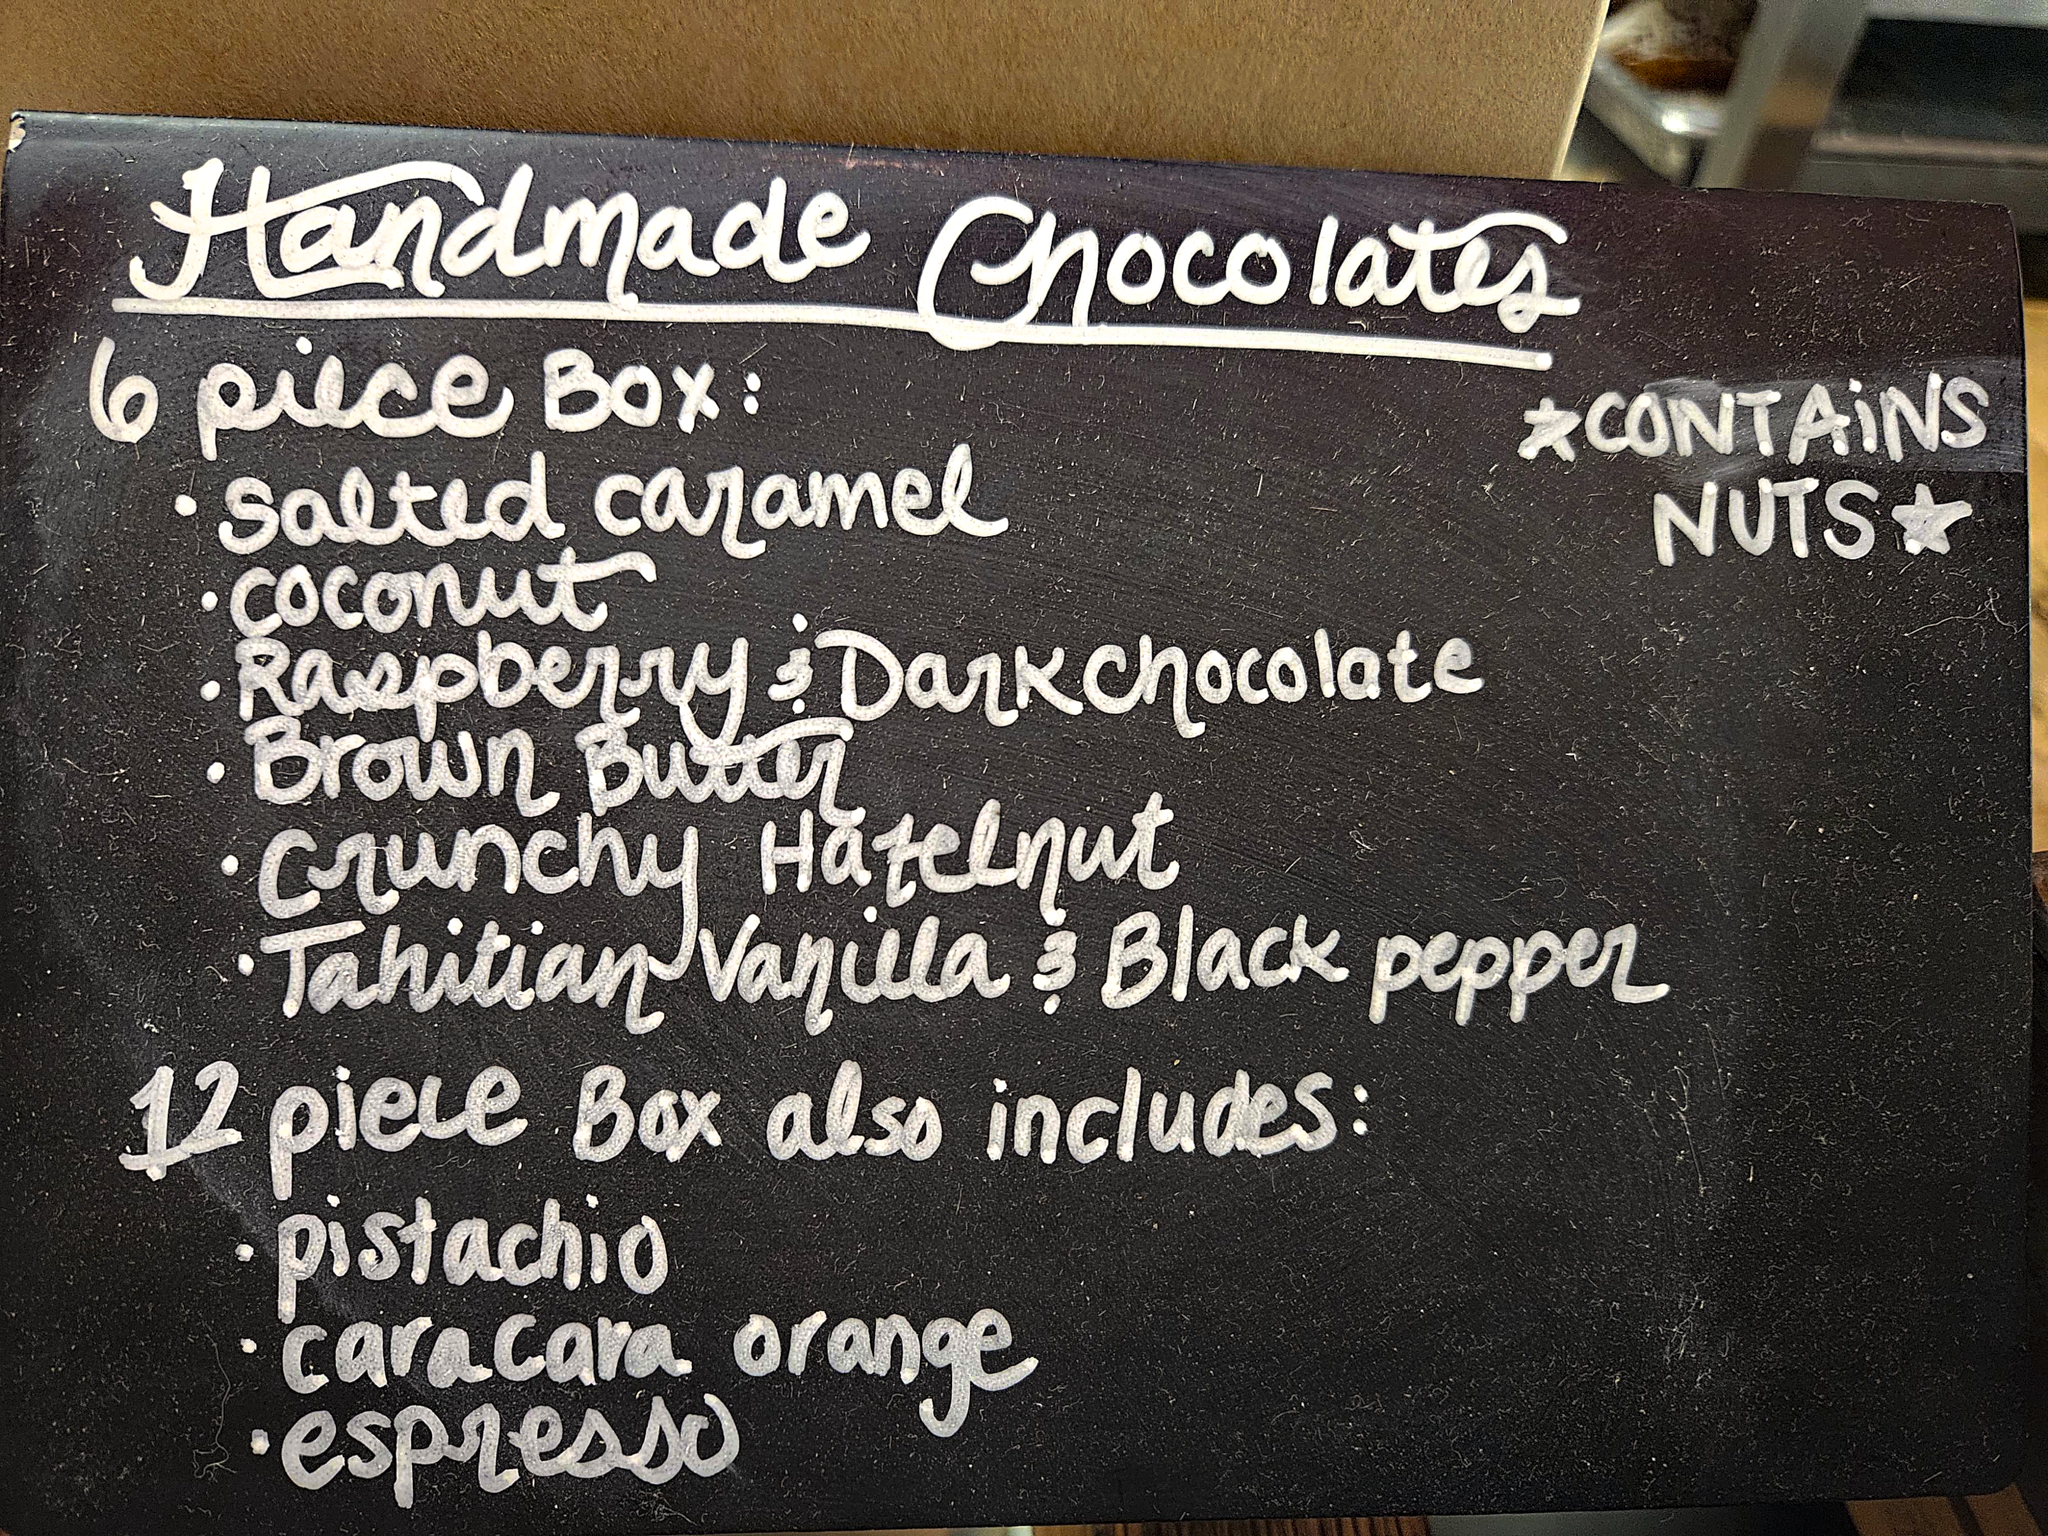 Handmade Chocolates
6 piece Box:
★CONTAiNS
NUTS★
• salted caramel
• coconut
• Raspberry & Dark chocolate
• Brown Butter
• crunchy Hazelnut
• Tahitian Vanilla & Black pepper
12 piece Box also includes:
• pistachio
• cara cara orange
• espresso